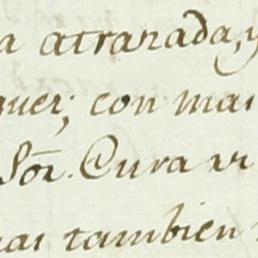 a atrazada, y
quer; con mas
Sōr. Cura
mas tambien